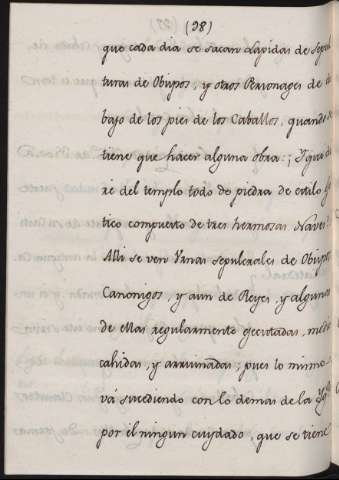 (98)
que cada dia se sacan Lapidas de Sepul
turas de Obispos, y otros Personages de de
bajo de los pies de los Caballos, quando se
tiene que hacer alguna obra: ¿Y que di
ré del templo todo de piedra de estilo Go
tico compuesto de tres hermosas Naves?
Alli se ven Urnas sepulcrales de Obispos
Canonigos, y aun de Reyes, y algunas
de ellas regularmente medio
cahidas, y arruinadas; pues lo mismo
vá sucediendo con lo demas de la Ygª
por el ningun cuydado, que se tiene